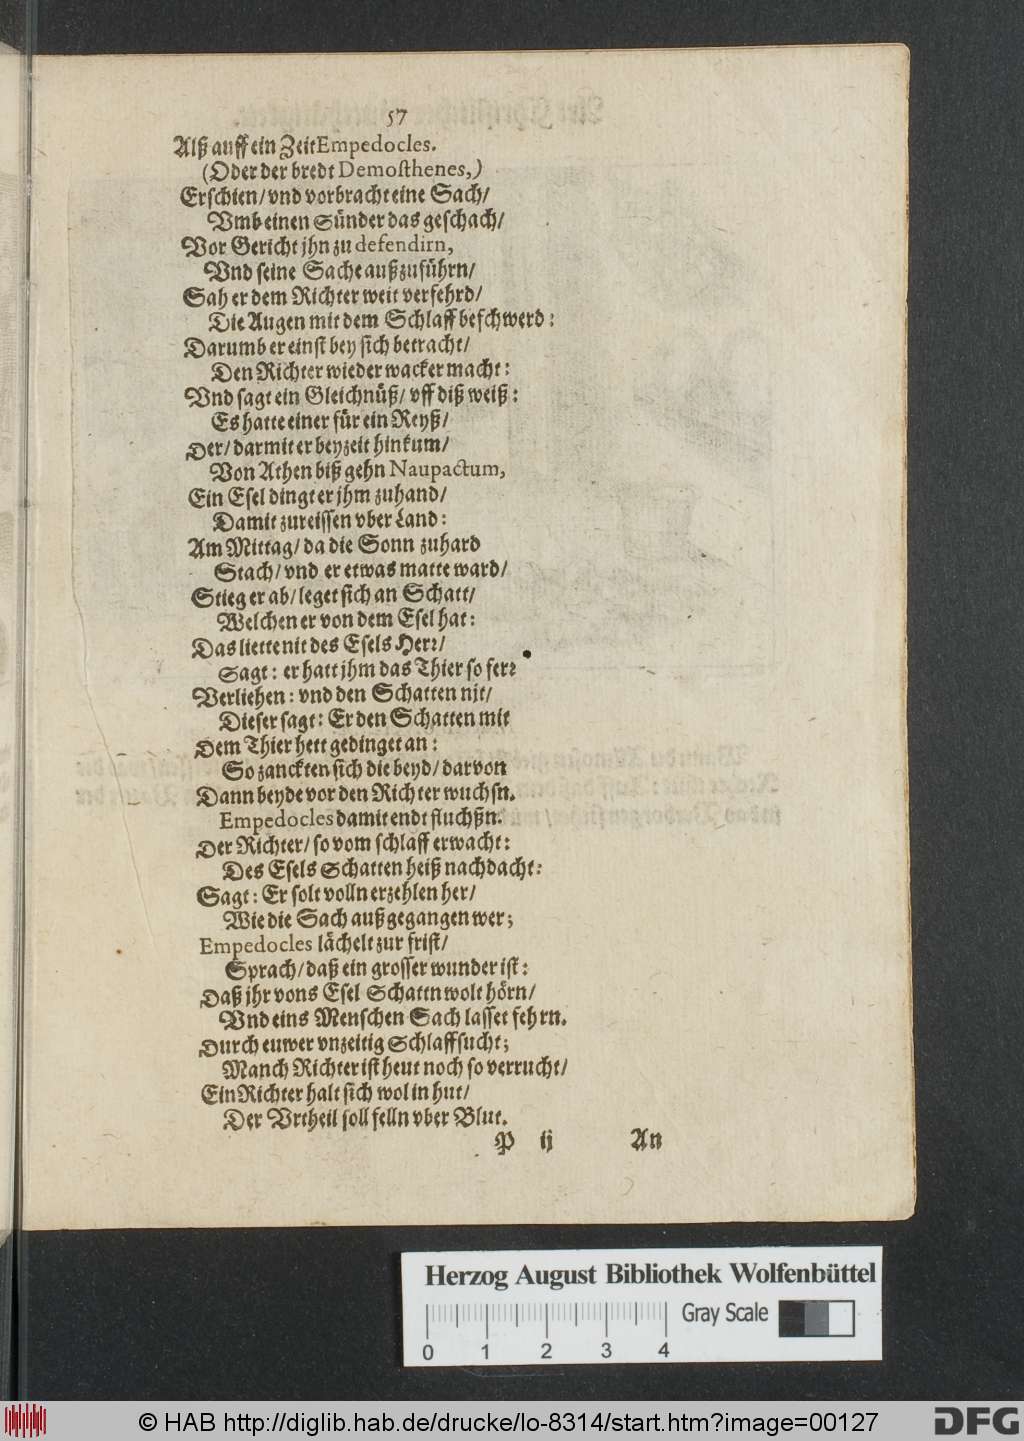 57
Alß auff ein Zeit Empedocles.
(Oder der bredt Demosthenes,)
Erschien/ vnd vorbracht eine Sach/
Vmb einen Sünder das geschach/
Vor Gericht jhn zu defendirn,
Vnd seine Sache außzuführn/
Sah er dem Richter weit verfehrd/
Die Augen mit dem Schlaff beschwerd:
Darumb er einst bey sich betracht/
Den Richter wieder wacker macht:
Vnd sagt ein Gleichnüß/ vff diß weiß:
Es hatte einer für ein Reyß/
Der/ darmit er beyzeit hinkum/
Von Athen biß gehn Naupactum,
Ein Esel dingt er jhm zuhand/
Damit zureissen vber Land:
Am Mittag/ da die Sonn zuhard
Stach/ vnd er etwas matte ward/
Stieg er ab/ leget sich an Schatt/
Welchen er von dem Esel hat:
Das liette nit des Esels Herr/
Sagt: er hatt jhm das Thier so ferr
Verliehen: vnd den Schatten nit/
Dieser sagt: Er den Schatten mit
Dem Thier hett gedinget an:
So zanckten sich die beyd/ darvon
Dann beyde vor den Richter wuchsn.
Empedocles damit endt fluchßn.
Der Richter/ so vom schlaff erwacht:
Des Esels Schatten heiß nachdacht:
Sagt: Er solt volln erzehlen her/
Wie die Sach außgegangen wer;
Empedocles lächelt zur frist/
Sprach/ daß ein grosser wunder ist:
Daß jhr vons Esel Schattn wolt hörn/
Vnd eins Menschen Sach lasset fehrn.
Durch euwer vnzeitig Schlaffsucht;
Manch Richter ist heut noch so verrucht/
Ein Richter halt sich wol in hut/
Der Vrtheil soll felln vber Blut.
P ij An
Herzog August Bibliothek Wolfenbüttel
Gray Scale
0 1 2 3 4
© HAB http://diglib.hab.de/drucke/lo-8314/start.htm?image=00127
DFG